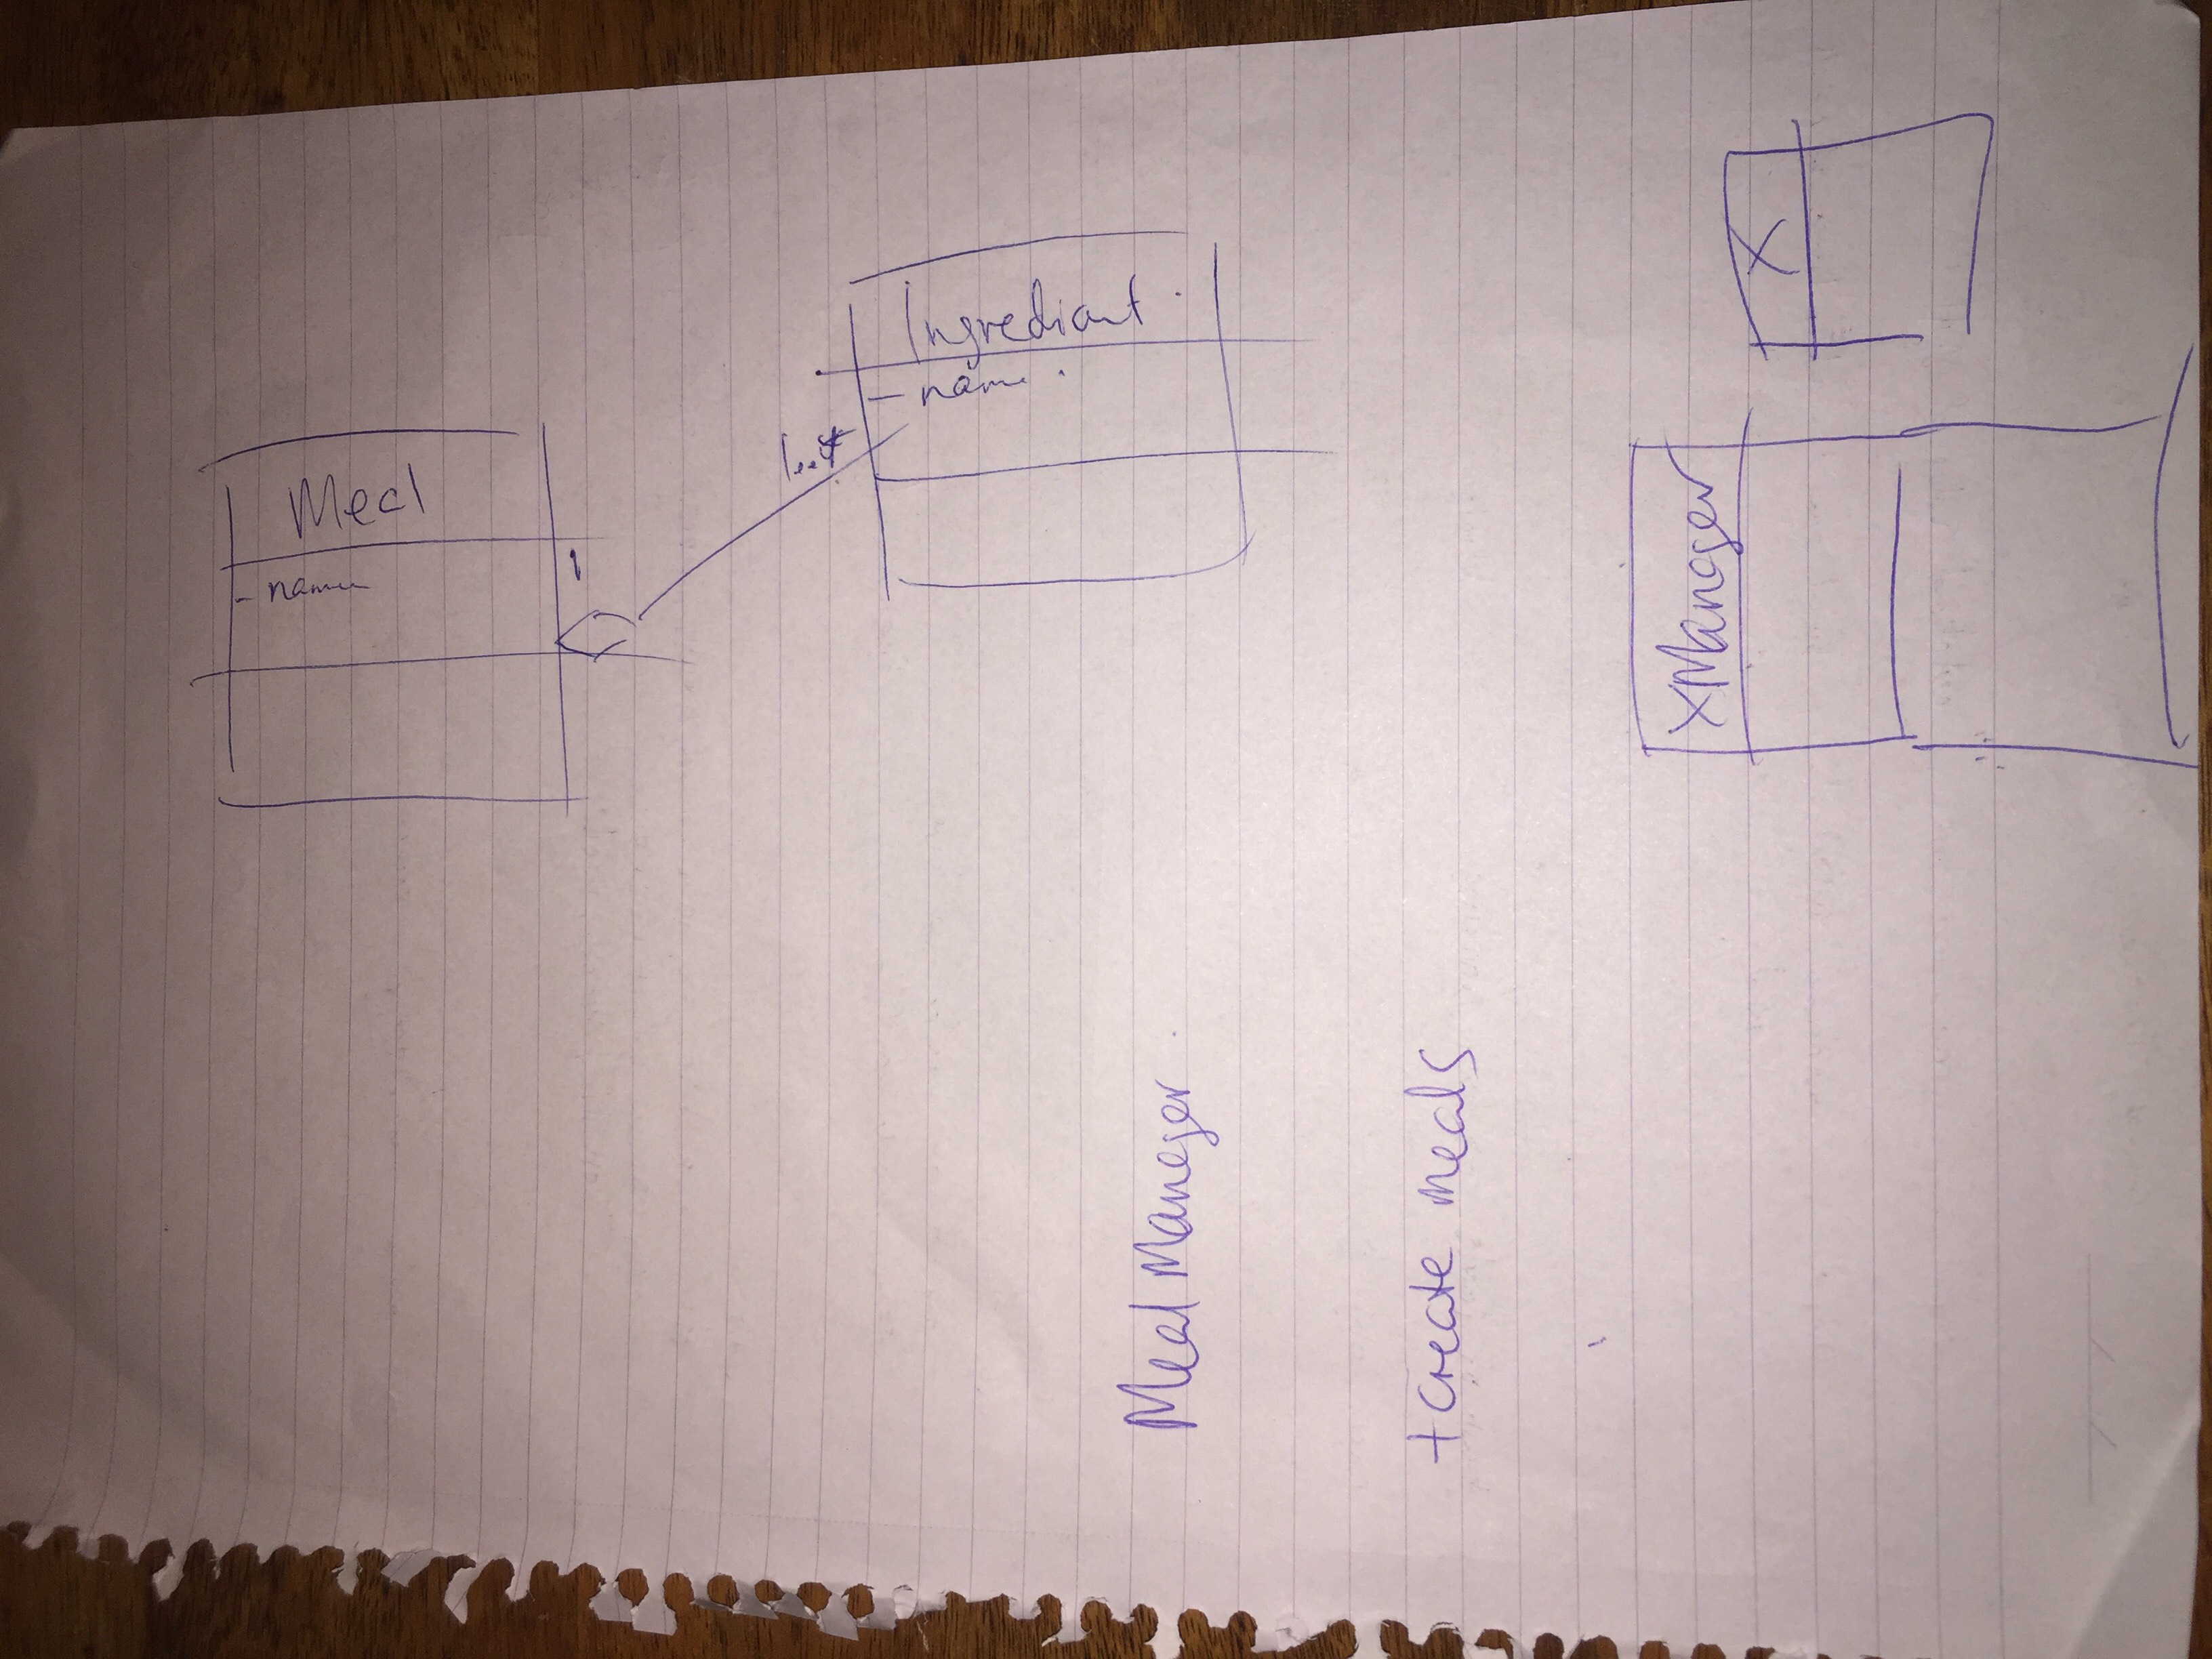 Meal
- name
1
1..*
Ingrediant.
- name
Meal Manager.
+create meals
XManager
X